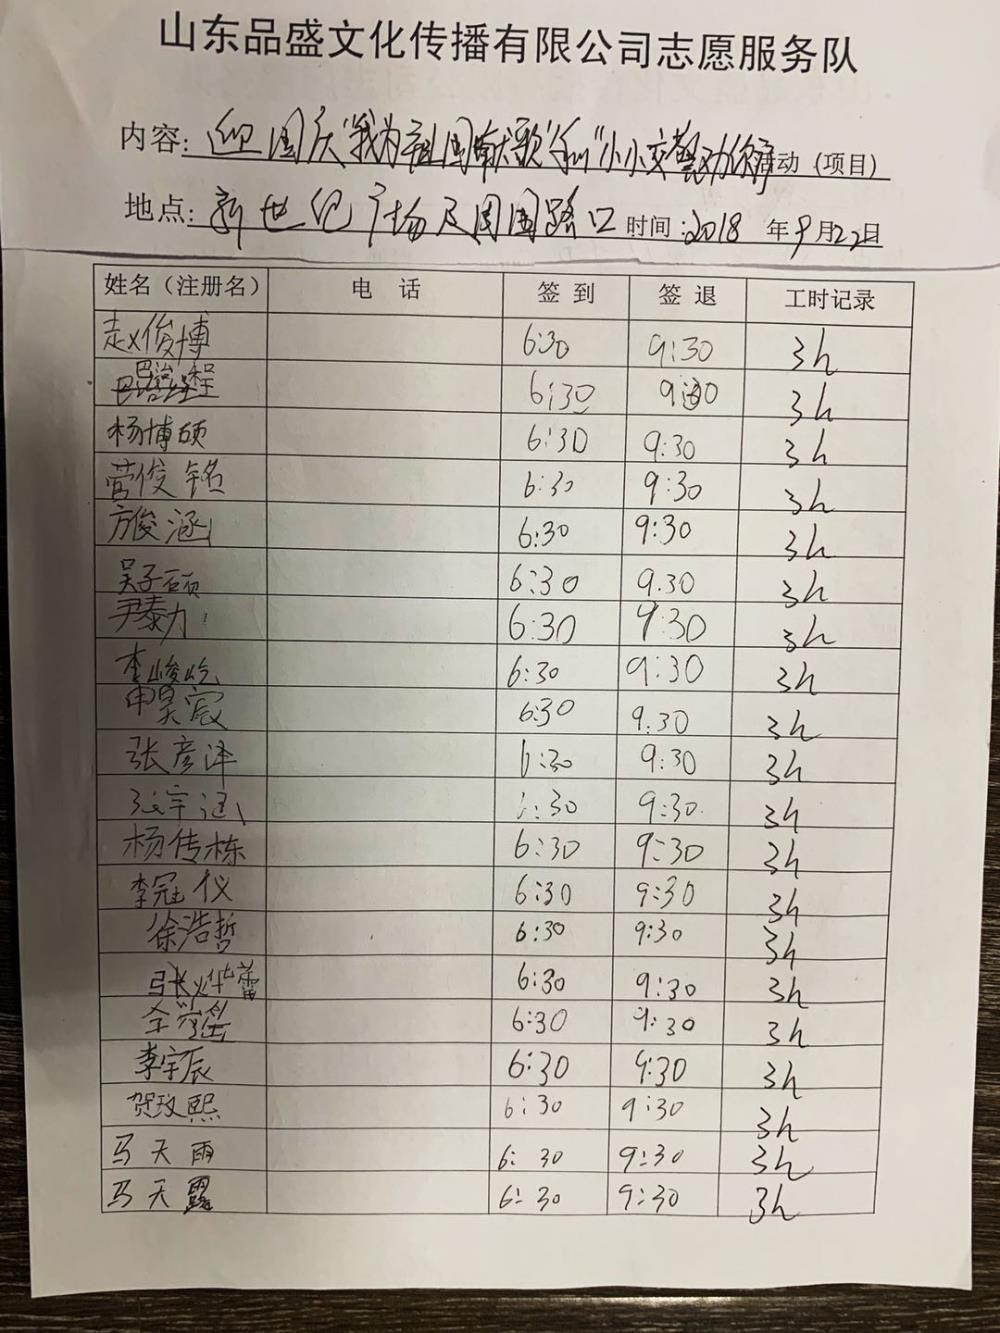 山东品盛文化传播有限公司志愿服务队
内容: 迎国庆"我为祖国献歌"和"小小交警动 活动 (项目)
地点: 新世纪广场及周围路口 时间:2018 年9月22日
姓名(注册名) 电 话 签 到 签 退 工时记录
赵俊博 6:30 9:30 3h
程 6:30 9:30 3h
杨博硕 6:30 9:30 3h
菅俊铭 6:30 9:30 3h
方俊涵 6:30 9:30 3h
吴子硕 6:30 9.30 3h
尹泰力 6:30 9:30 3h
李峻屹 6:30 9:30 3h
申昊宸 6:30 9.30 3h
张彦泽 6:30 9:30 3h
张宇涵 6:30 9:30 3h
杨传栋 6:30 9:30 3h
李冠仪 6:30 9:30 3h
徐浩哲 6:30 9:30 3h
张烨蕾 6:30 9:30 3h
6:30 9:30 3h
李宇辰 6:30 9:30 3h
贺玫熙 6:30 9:30 3h
马天雨 6:30 9:30 3h
马天露 6:30 9:30 3h